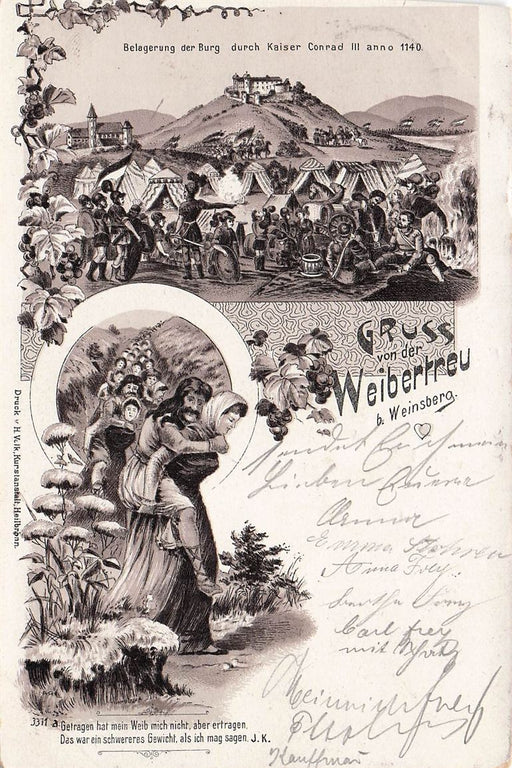 Belagerung der Burg durch Kaiser Conrad III anno 1140.
Gruss
von der
Weibertreu
b. Weinsberg.
sendet Euch
Lieben
Emma
Anna Frey.
Carl Frey
mit
Heinrich Frey
Kaufmann
Druck v. H. Wolk, Kunstanstalt, Heilbronn.
3311 a. Getragen hat mein Weib mich nicht, aber ertragen,
Das war ein schwereres Gewicht, als ich mag sagen. J. K.